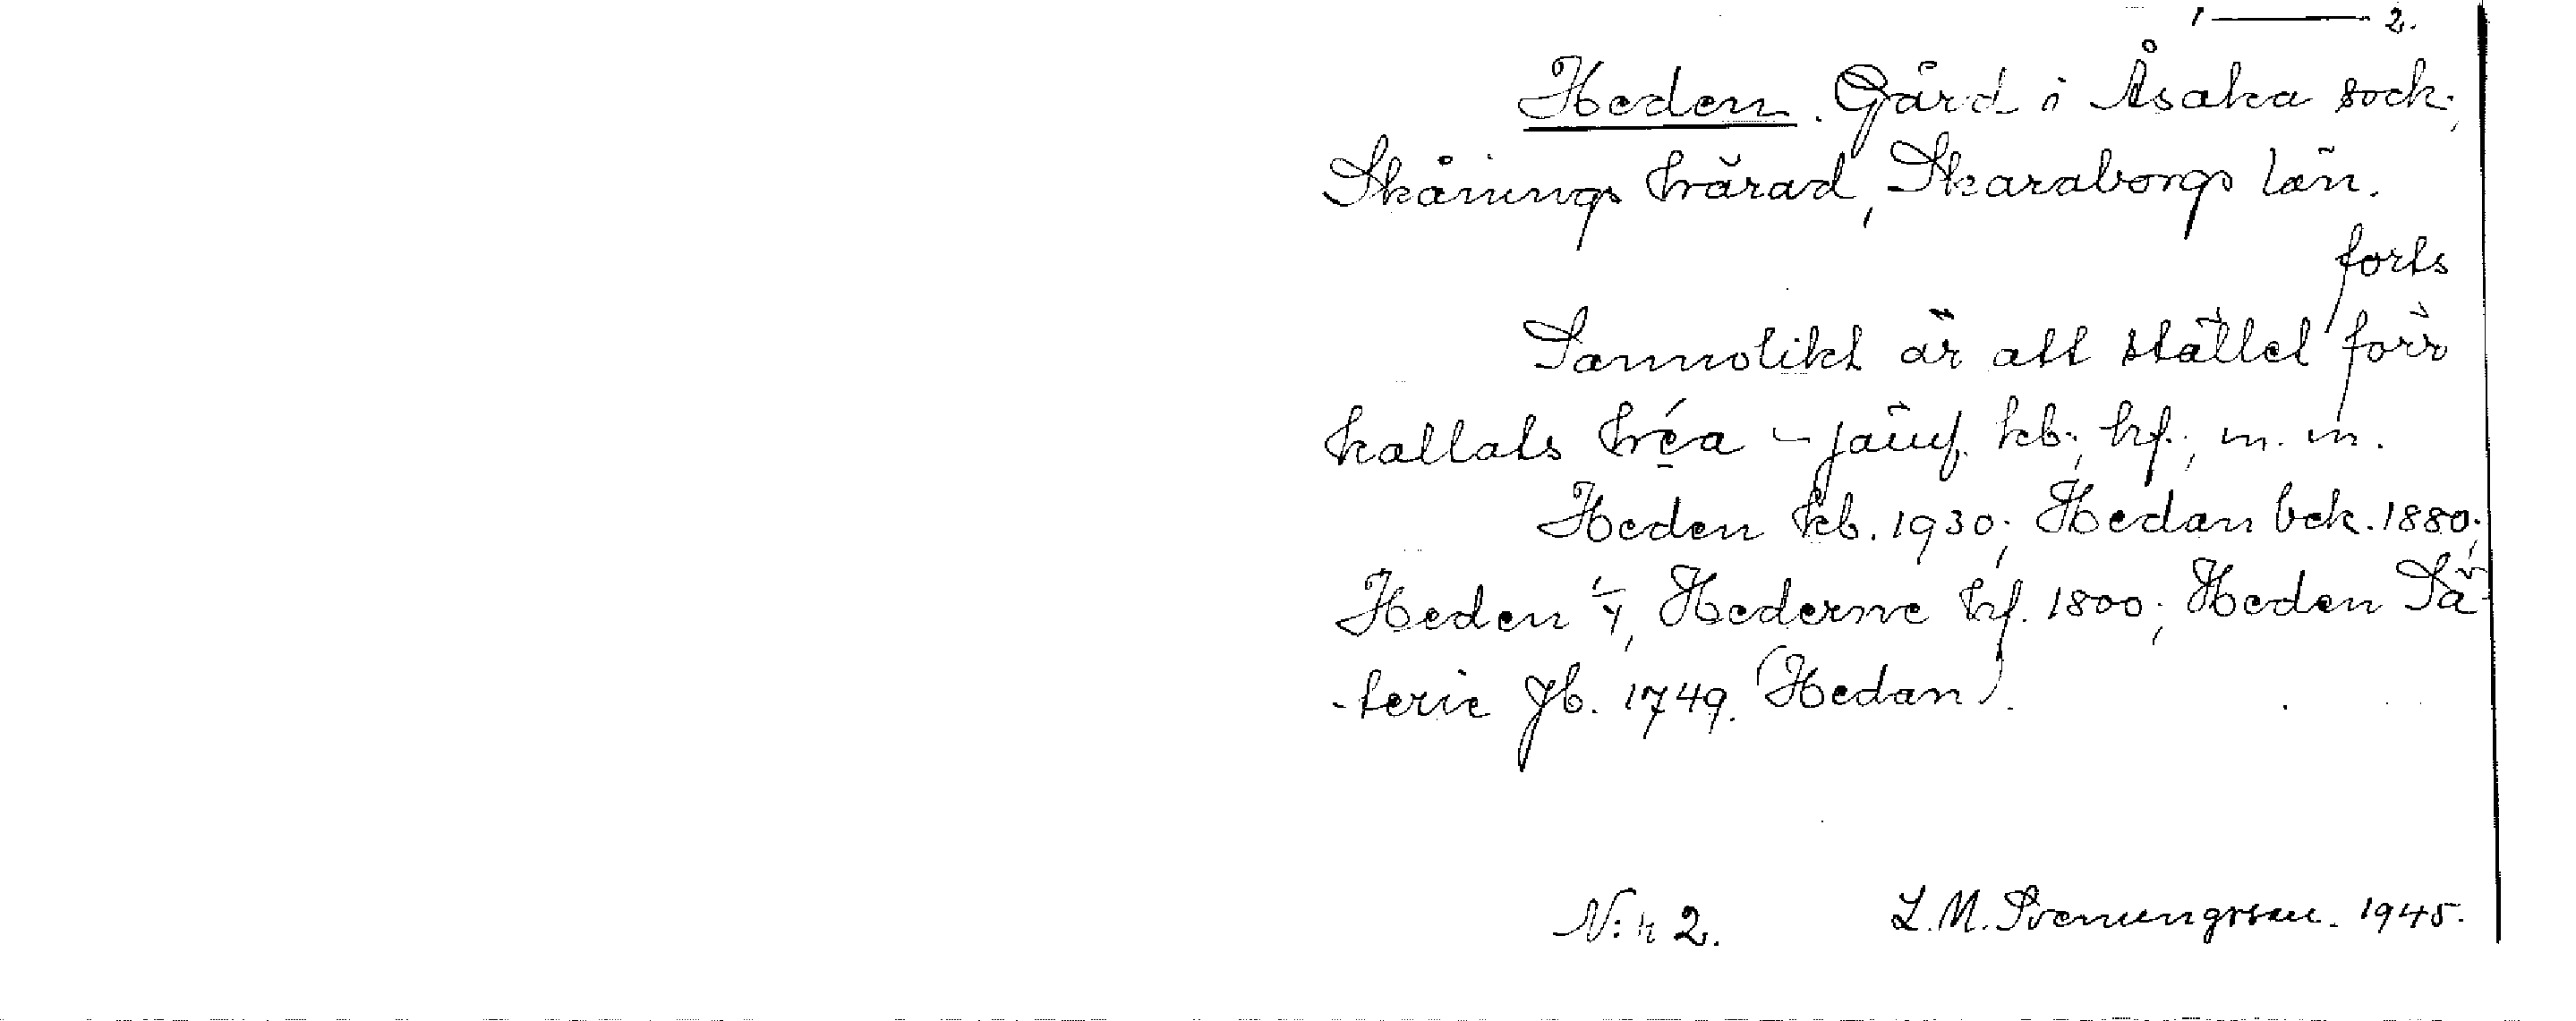 1 — 2.
Heden. Gård i Åsaka sock.,
Skånings härad, Skaraborgs län.
forts
Sannolikt är att stället förr
kallats hea – jämf. kb., hf., m. m.
Heden kb. 1930; Hedan bek. 1880;
Heden 1/4, Hederne hf. 1800; Heden Sä-
-terie Jb. 1749. (Hedan).
N:r 2. L. M. Svenungsson. 1945.